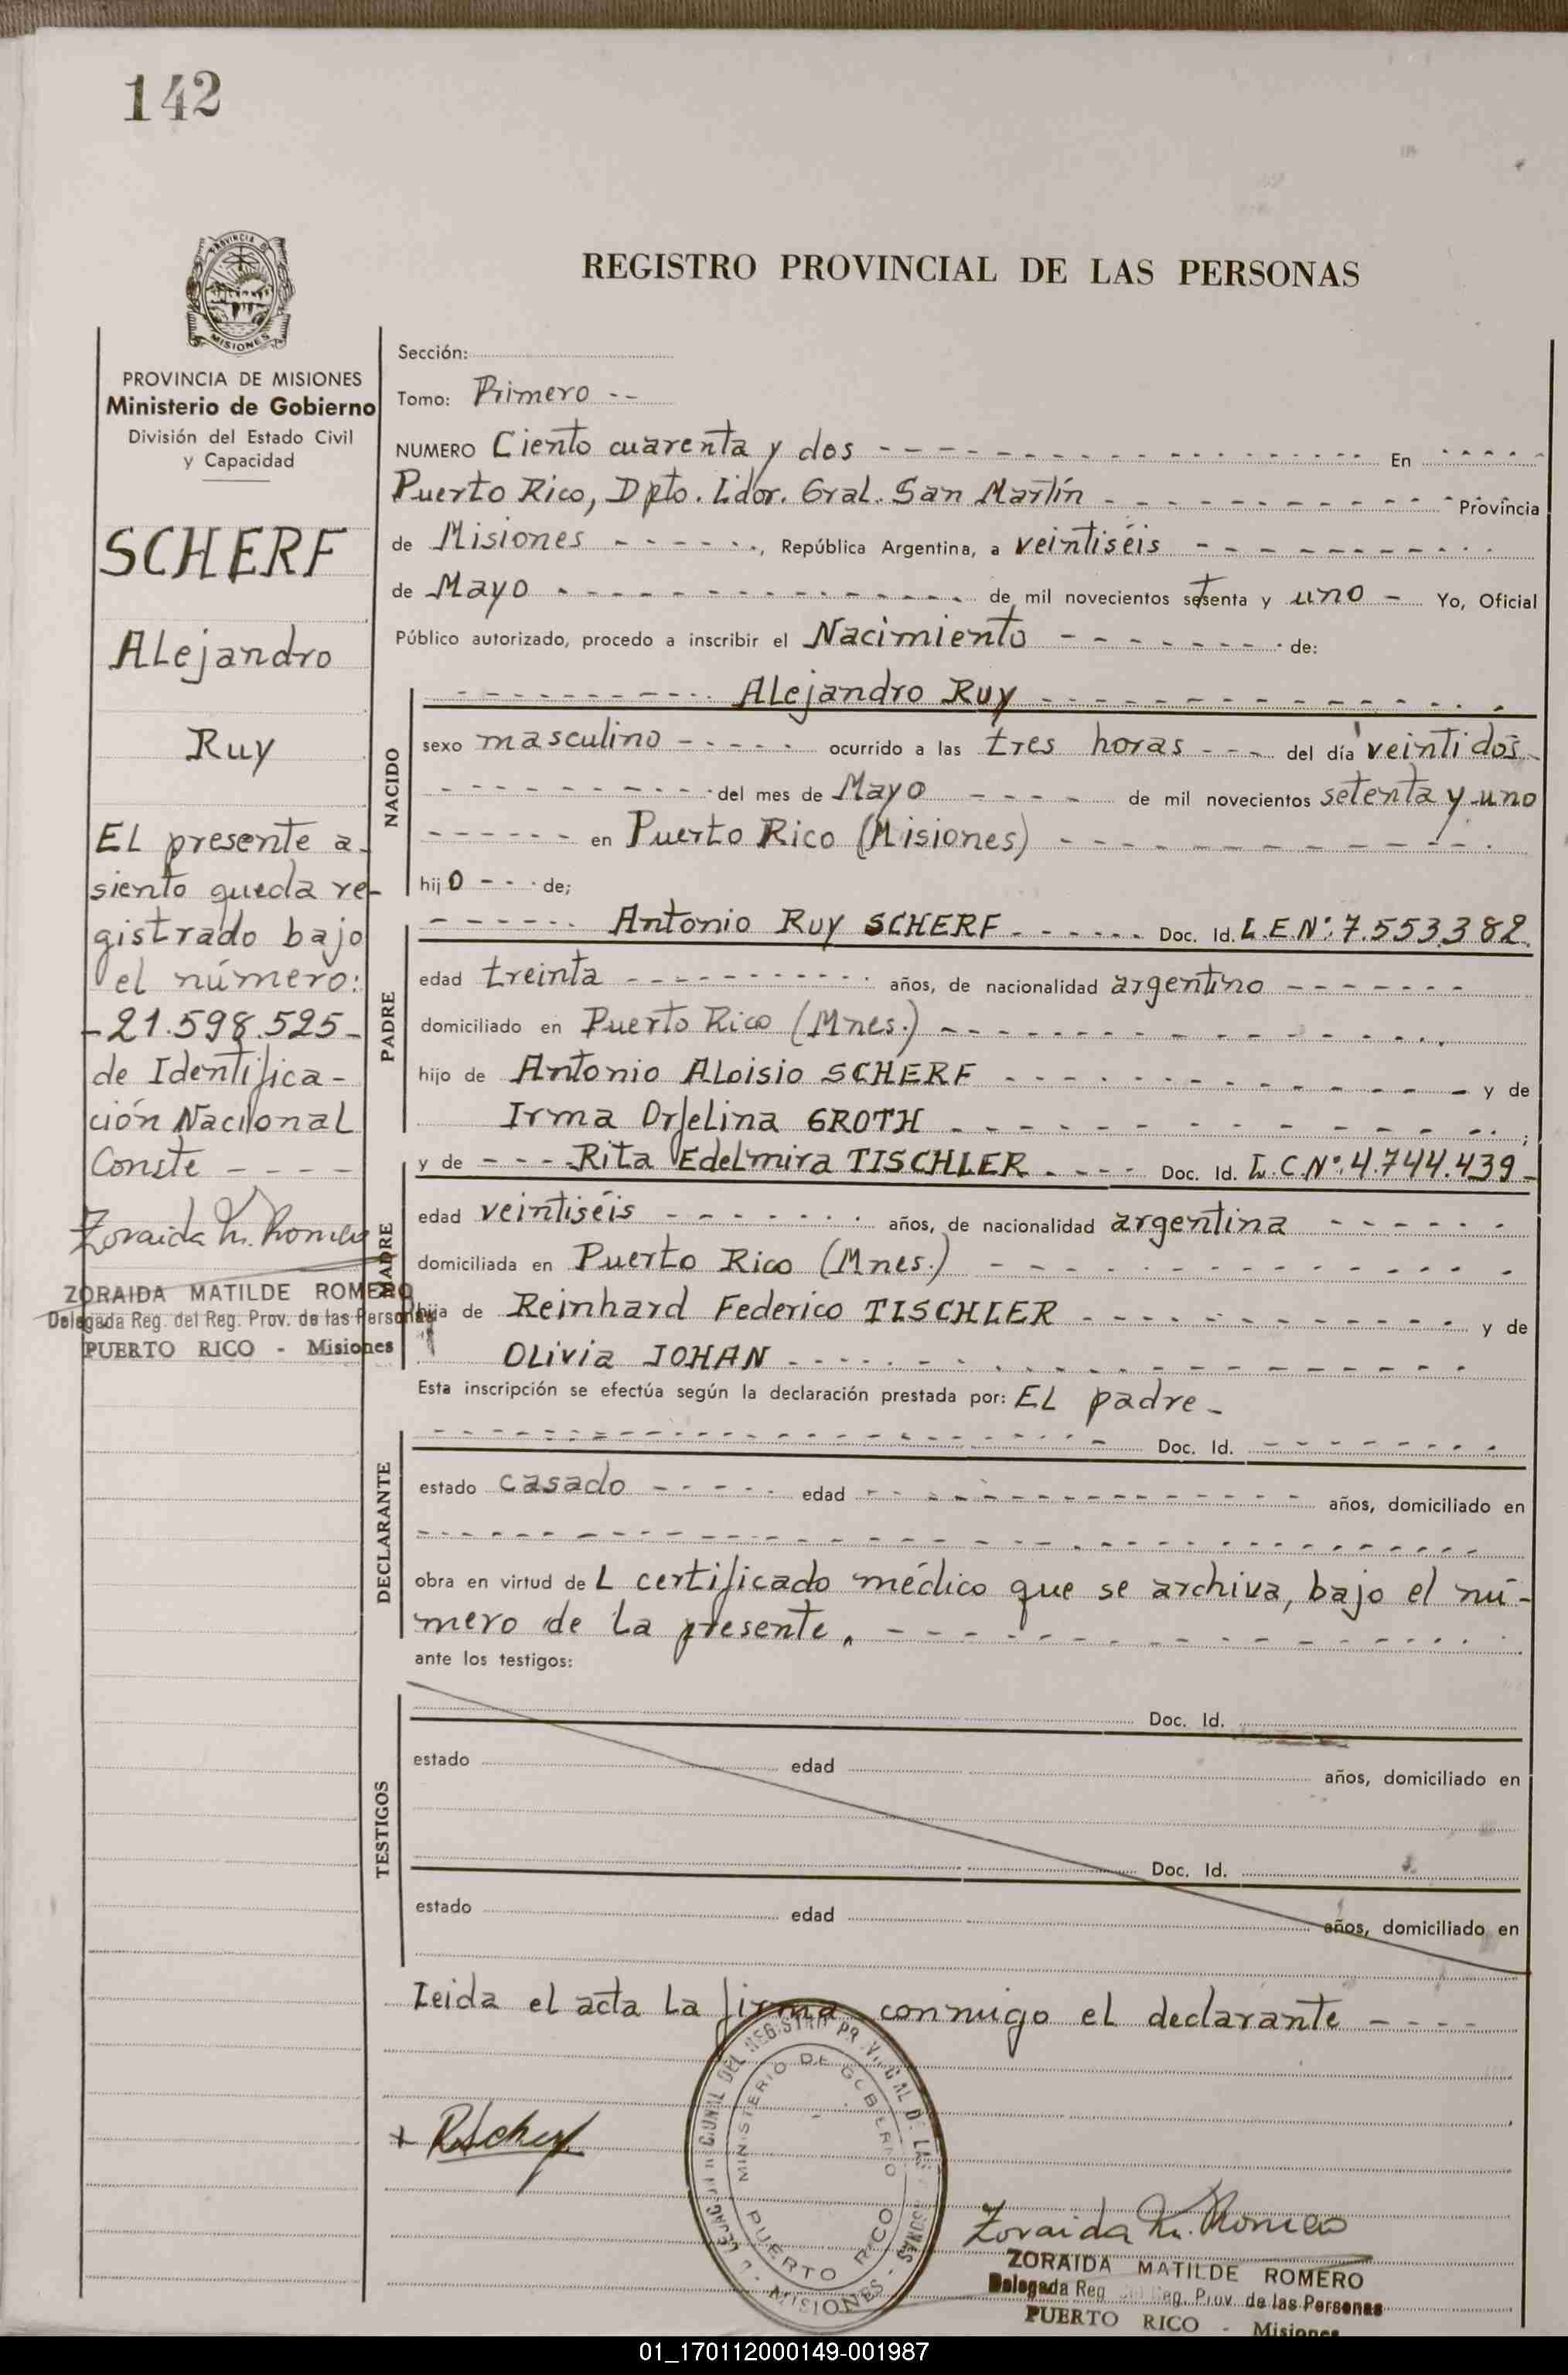 142
PROVINCIA DE MISIONES
REGISTRO PROVINCIAL DE LAS PERSONAS
PROVINCIA DE MISIONES
Ministerio de Gobierno
División del Estado Civil
y Capacidad
SCHERF
Alejandro
Ruy
El presente a-
siento queda re-
gistrado bajo
el número:
-21.598.525-
de Identifica-
ción Nacional
Conste - - - -
Zoraida M. Romero
ZORAIDA MATILDE ROMERO
Delegada Reg. del Reg. Prov. de las Personas
PUERTO RICO - Misiones
Sección:
Tomo: Primero --
NUMERO Ciento cuarenta y dos - - - En - - -
Puerto Rico, Dpto. Ldor. Gral. San Martín - - - Provincia
de Misiones - - -, República Argentina, a veintiséis - - -
de Mayo - - - de mil novecientos setenta y uno - Yo, Oficial
Público autorizado, procedo a inscribir el Nacimiento - - - de:
NACIDO
- - - Alejandro Ruy - - -
sexo masculino - - - ocurrido a las tres horas - - - del día veintidos -
- - - del mes de Mayo - - - de mil novecientos setenta y uno
- - - en Puerto Rico (Misiones) - - -
hijo - - - de;
PADRE
- - - Antonio Ruy SCHERF - - - Doc. Id. L.E.Nº: 7.553.382.
edad treinta - - - años, de nacionalidad argentino - - -
domiciliado en Puerto Rico (Mnes.) - - -
hijo de Antonio Aloisio SCHERF - - - y de
Irma Orfelina GROTH - - - ;
MADRE
y de - - - Rita Edelmira TISCHLER - - - Doc. Id. L.C.Nº: 4.744.439 -
edad veintiséis - - - años, de nacionalidad argentina - - -
domiciliada en Puerto Rico (Mnes.) - - -
hija de Reinhard Federico TISCHLER - - - y de
Olivia JOHAN - - -
Esta inscripción se efectúa según la declaración prestada por: El padre -
DECLARANTE
- - - Doc. Id. - - -
estado casado - - - edad - - - años, domiciliado en
- - -
obra en virtud del certificado médico que se archiva, bajo el nú-
mero de la presente. - - -
ante los testigos:
TESTIGOS
Doc. Id.
estado edad años, domiciliado en
Doc. Id.
estado edad años, domiciliado en
Leida el acta la firma conmigo el declarante - - - -
+ RScherf
MINISTERIO DE GOBIERNO
PUERTO RICO
- MISIONES -
Zoraida M. Romero
ZORAIDA MATILDE ROMERO
Delegada Reg. del Reg. Prov. de las Personas
PUERTO RICO - Misiones
01_170112000149-001987